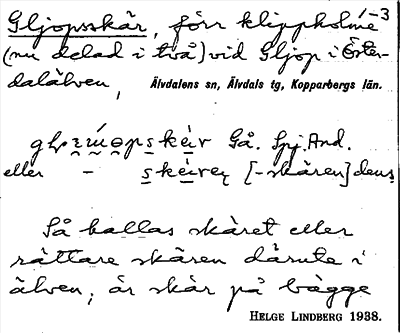 Gljopsskär, förr klippholme 1-3
(nu delad i två) vid Gljop i Öster-
dalälven, Älvdalens sn, Älvdals tg, Kopparbergs län.
skær Gå. Spj. And.
eller - skæreṇ [-skären] dens
Så kallas skäret eller
rättare skären därute i
älven; är skär på bägge
HELGE LINDBERG 1938.